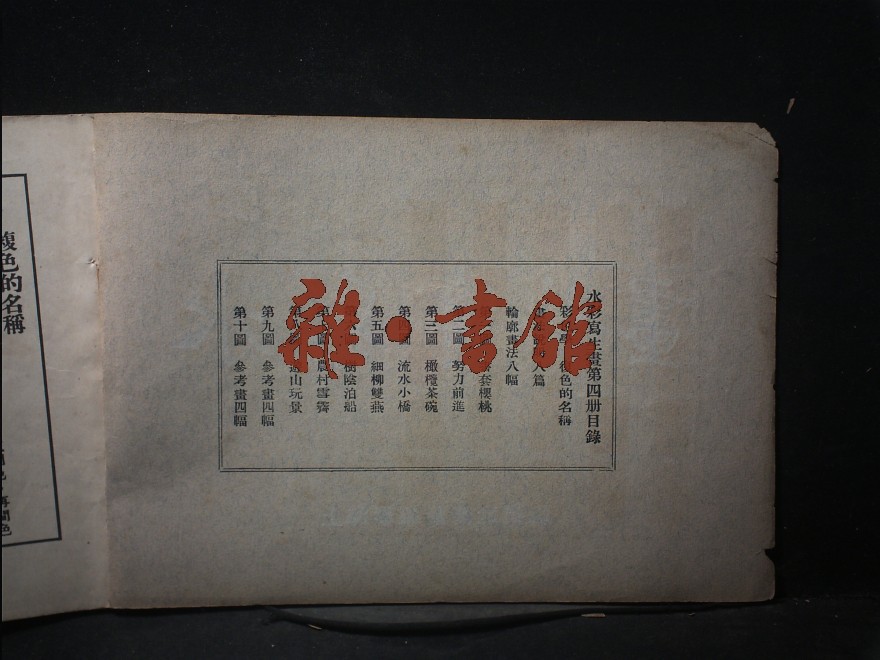 水彩寫生畫第四册目錄
彩色學 複色的名稱
八篇
輪廓畫法八幅
套櫻桃
第二圖 努力前進
第三圖 橄欖茶碗
第四圖 流水小橋
第五圖 細柳雙燕
樹陰泊船
農村雪霽
遊山玩景
第九圖 參考畫四幅
第十圖 參考畫四幅
雜·書館
複色的名稱
再間色